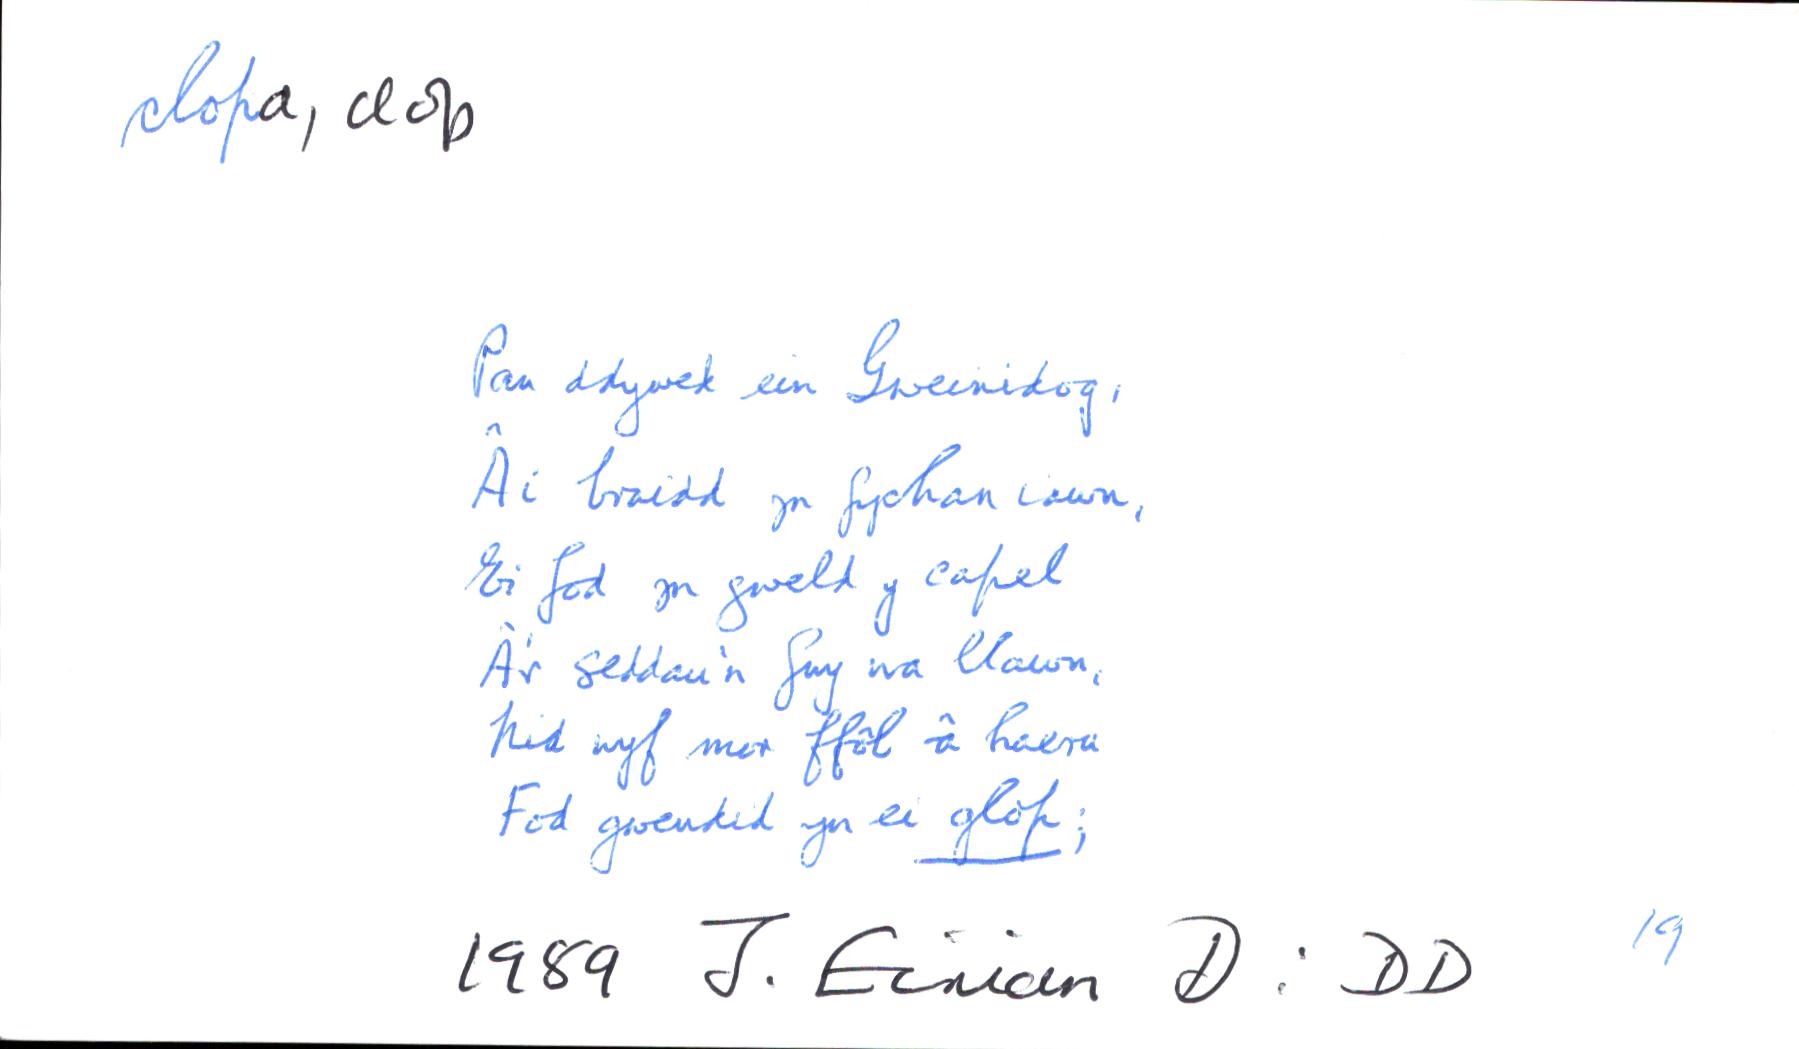 clopa, clop
Pan ddywed ein Gweinidog,
Â'i braidd yn fychan iawn,
Ei fod yn gweld y capel
Â'r seddau'n fwy na llawn,
Nid wyf mor ffôl â haeru
Fod gwendid yn ei glop;
1989 J. Eirian D: DD
19